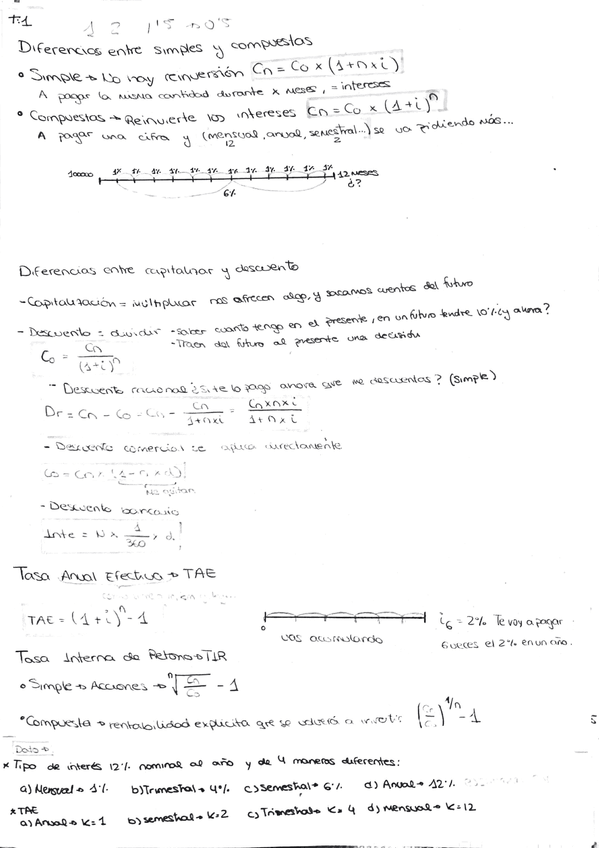 T.1
Diferencias entre simples y compuestas
• Simple → No hay reinversión Cn = Co × (1+n×i)
A pagar la misma cantidad durante x meses, = intereses
• Compuestas → Reinvierte los intereses Cn = Co × (1+i)^n
A pagar una cifra y (mensual, anual, semestral...) se va pidiendo más...
12 2
100000 1% 1% 1% 1% 1% 1% 1% 1% 1% 1% 1% 12 meses
6% ¿?
Diferencias entre capitalizar y descuento
- Capitalización = multiplicar nos ofrecen algo, y sacamos cuentos del futuro
- Descuento = dividir - saber cuanto tengo en el presente, en un futuro tendre 10% ¿y ahora?
- Traen del futuro al presente una decisión
Co = Cn / (1+i)^n
- Descuento racional ¿Si te lo pago ahora que me descuentas? (Simple)
Dr = Cn - Co = Cn - Cn / 1+n×i = Cn×n×i / 1+n×i
- Descuento comercial se aplica directamente
Co = Cn × (1-n×d)
Nos quitan
- Descuento bancario
Inte = N × 1/360 × d
Tasa Anual Efectiva → TAE
TAE = (1+i)^n - 1
0 i6 = 2% Te voy a pagar
vas acumulando 6 veces el 2% en un año.
Tasa Interna de Retorno → TIR
• Simple → Acciones → n√(Cn/Co) - 1
• Compuesta → rentabilidad explicita que se volverá a invertir (Cn/Co)^1/n - 1
5
Dato →
* Tipo de interés 12% nominal al año y de 4 maneras diferentes:
a) Mensual → 1% b) Trimestral → 4% c) Semestral → 6% d) Anual → 12%
* TAE
a) Anual → K=1 b) semestral → K=2 c) Trimestral → K=4 d) mensual → K=12